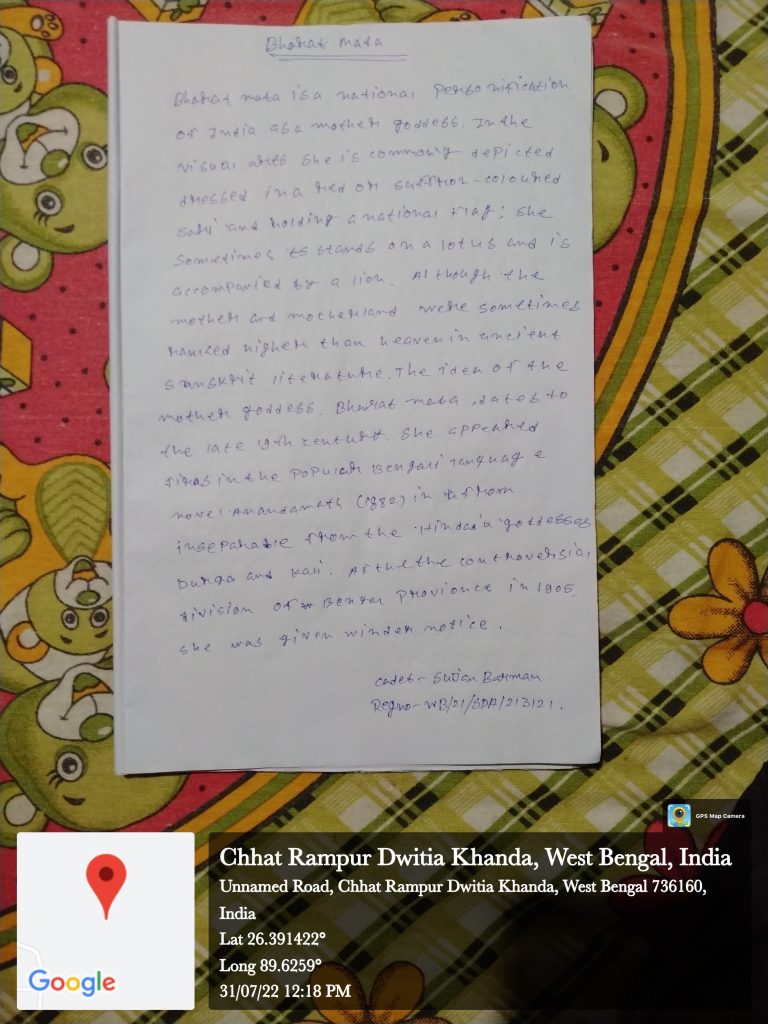 Bharat mata
Bharat mata is a national personification
of India as a mother goddess. In the
visual arts she is commonly depicted
dressed in a red or saffron-coloured
sari and holding a national flag; she
sometimes stands on a lotus and is
accompanied by a lion. Although the
mother and motherland were sometimes
ranked higher than heaven in ancient
sanskrit literature. The idea of the
mother goddess, Bharat mata dates to
the late 19th century. She appeared
in the popular Bengali language
novel Anandamath (1882) in form
inseparable from the Hindu goddesses
Durga and Kali. the controversial
division of Bengal Provionce in 1905,
she was given winder notice.
cadet- Sujan Barman
Regno- WB/21/SDA/213121.
GPS Map Camera
Chhat Rampur Dwitia Khanda, West Bengal, India
Unnamed Road, Chhat Rampur Dwitia Khanda, West Bengal 736160,
India
Lat 26.391422°
Long 89.6259°
31/07/22 12:18 PM
Google